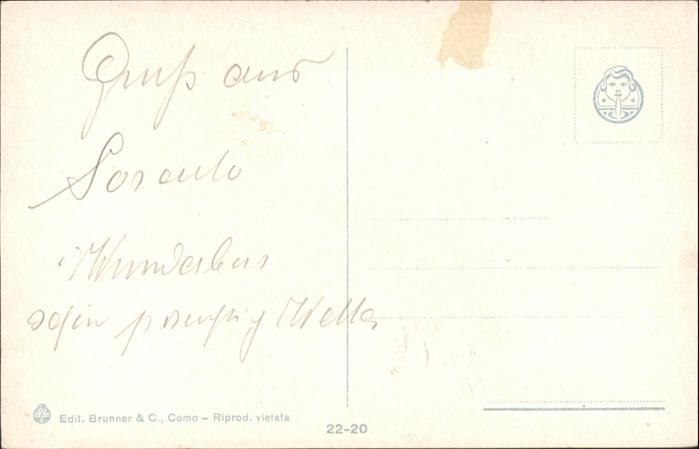 Gruß aus
Sorento
Wunderbar
schön Wetter
Edit. Brunner & C., Como – Riprod. vietata
22-20